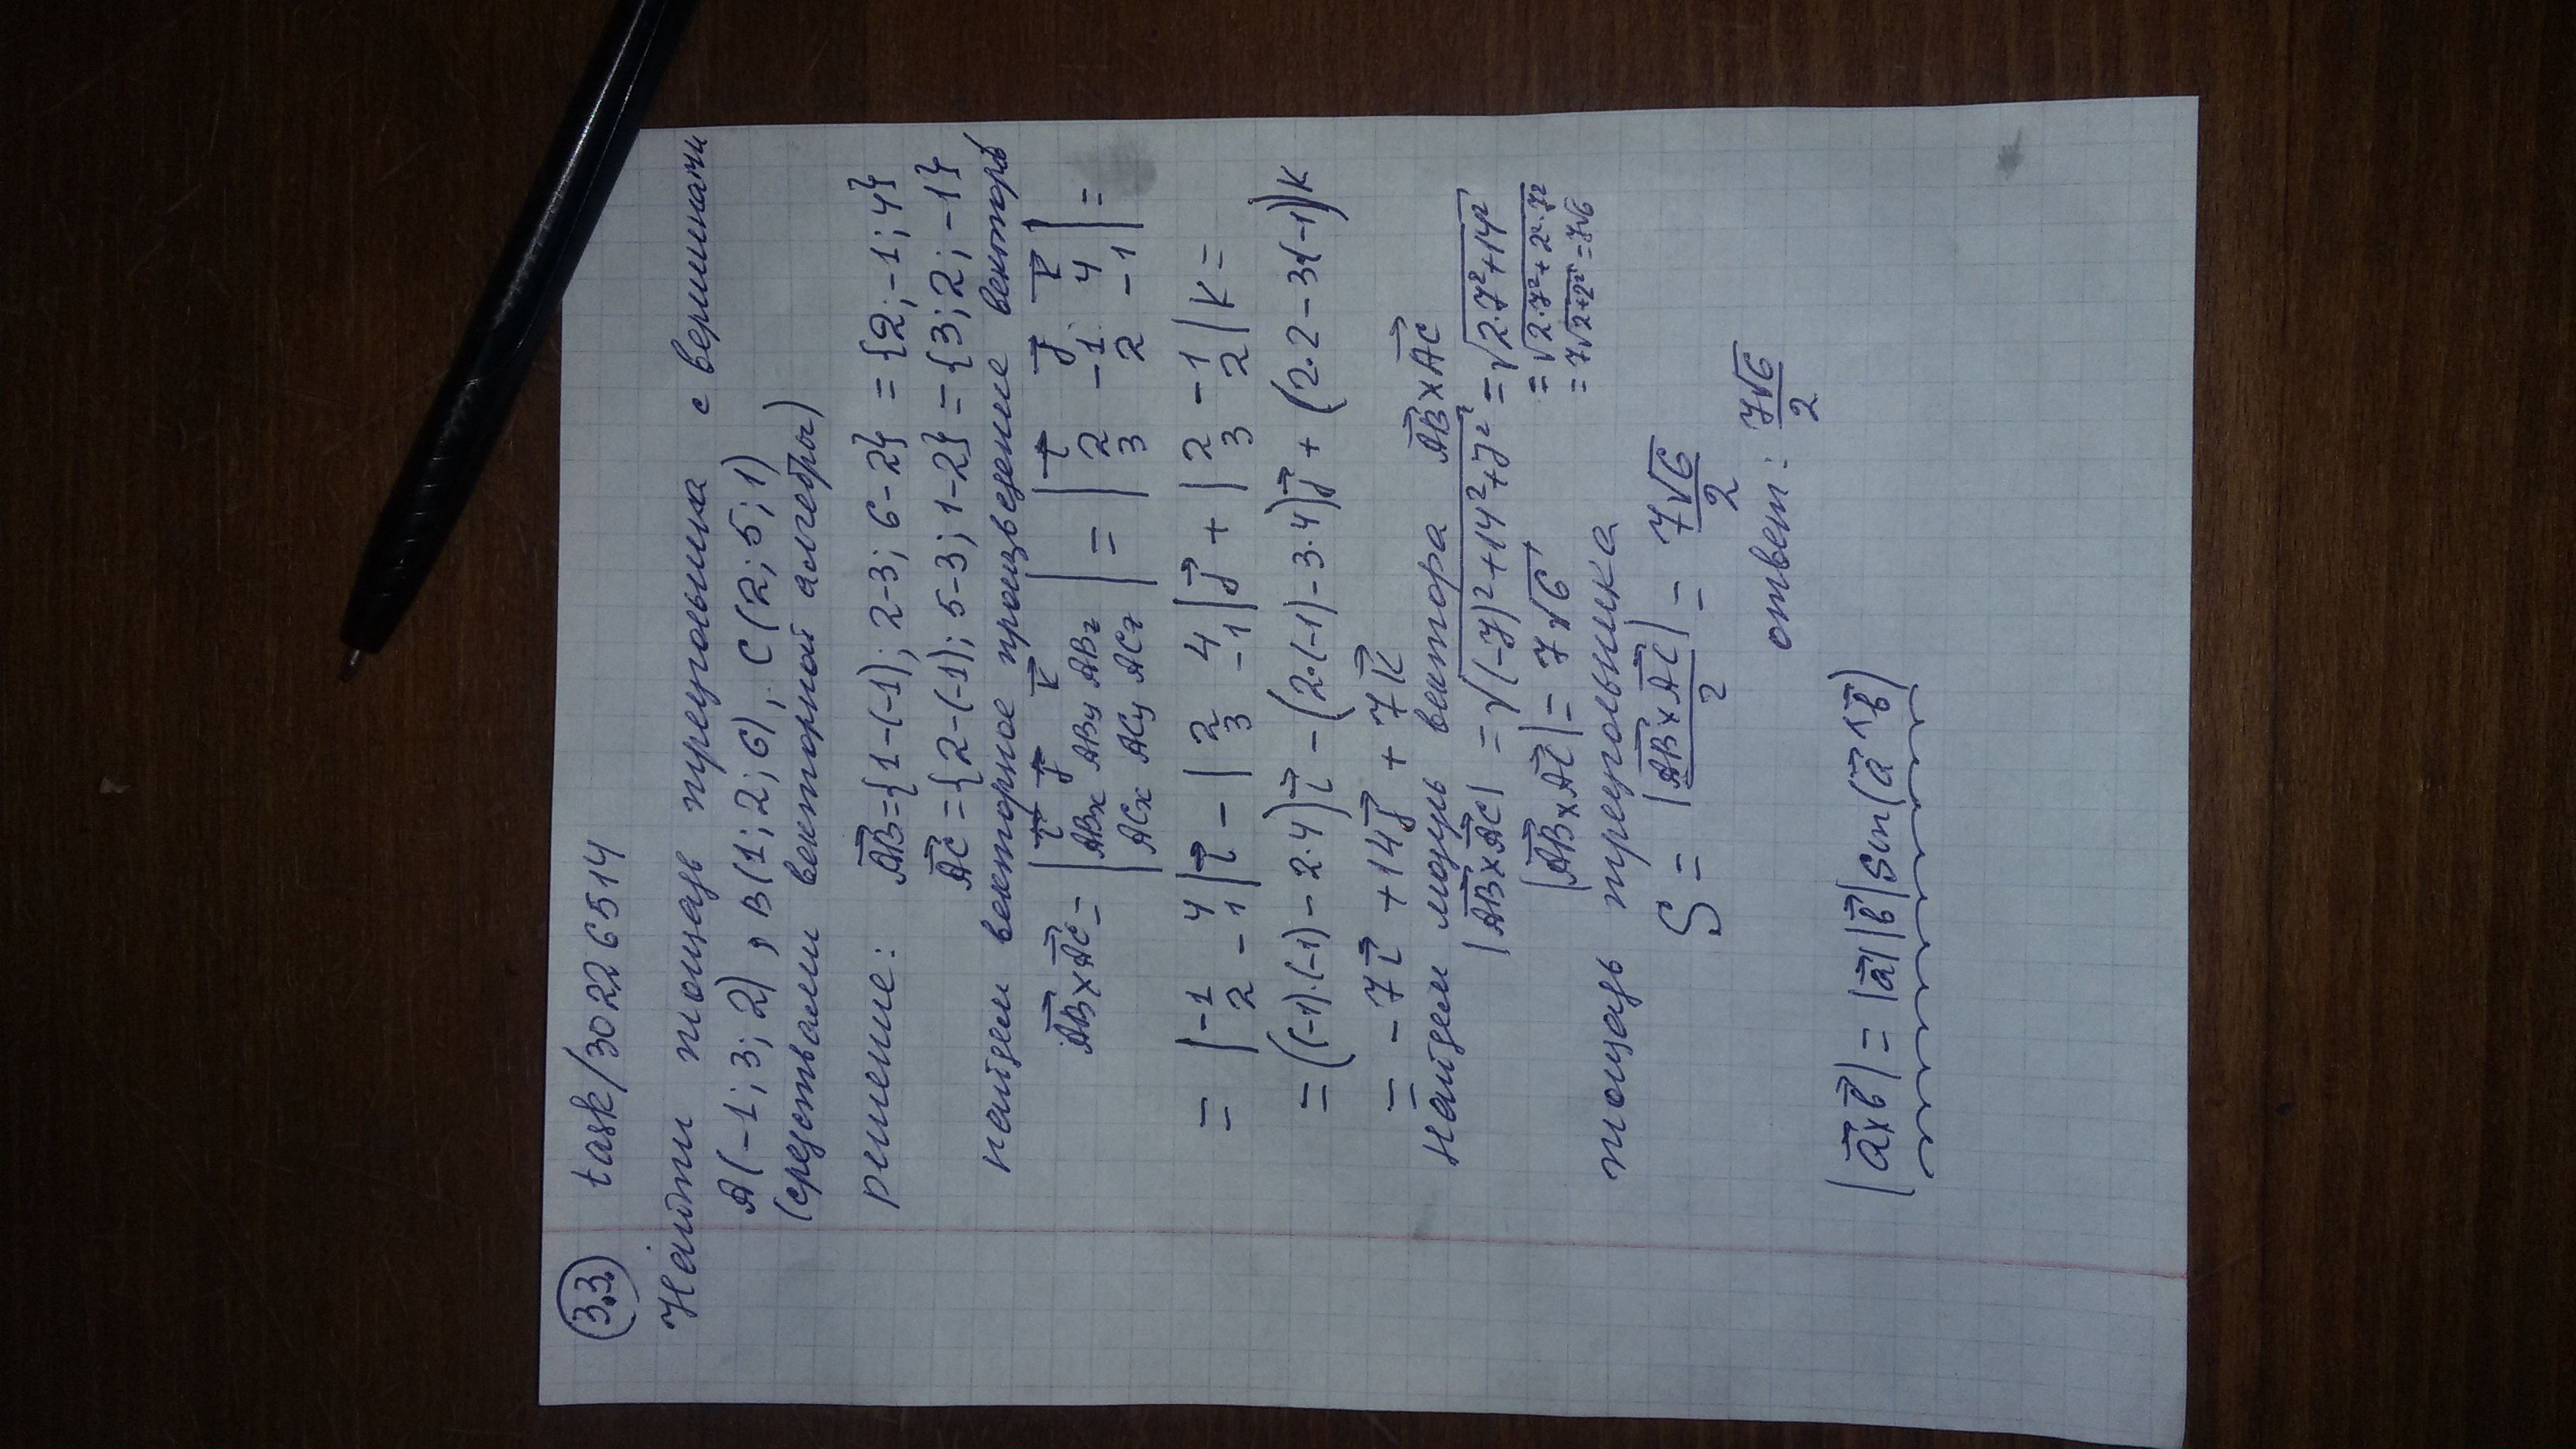 3.3. task/30226514
Найти площадь треугольника с вершинами
A(-1;3;2), B(1;2;6), C(2;5;1)
(средствами векторной алгебры)
решение: AB={1-(-1); 2-3; 6-2} = {2;-1;4}
AC={2-(-1); 5-3; 1-2} = {3;2;-1}
найдем векторное произведение векторов
AB×AC= | i j k | = | i j k |
| ABx ABy ABz | = | 2 -1 4 |
| ACx ACy ACz | = | 3 2 -1 | =
= |-1 4| i - |2 4| j + |2 -1| k =
|2 -1| |3 -1| |3 2|
=((-1)·(-1)-2·4)i - (2·(-1)-3·4)j + (2·2-3·(-1))k
= -7i + 14j + 7k
Найдем модуль вектора AB×AC
|AB×AC| = √(-7)²+14²+7² = √2·7²+14²
= √2·7²+2²·7²
|AB×AC| = 7√6
= 7√2+2² = 7√6
площадь треугольника
S = |AB×AC|/2 = 7√6/2
ответ: 7√6/2
|a×b| = |a||b|sin(a^b)